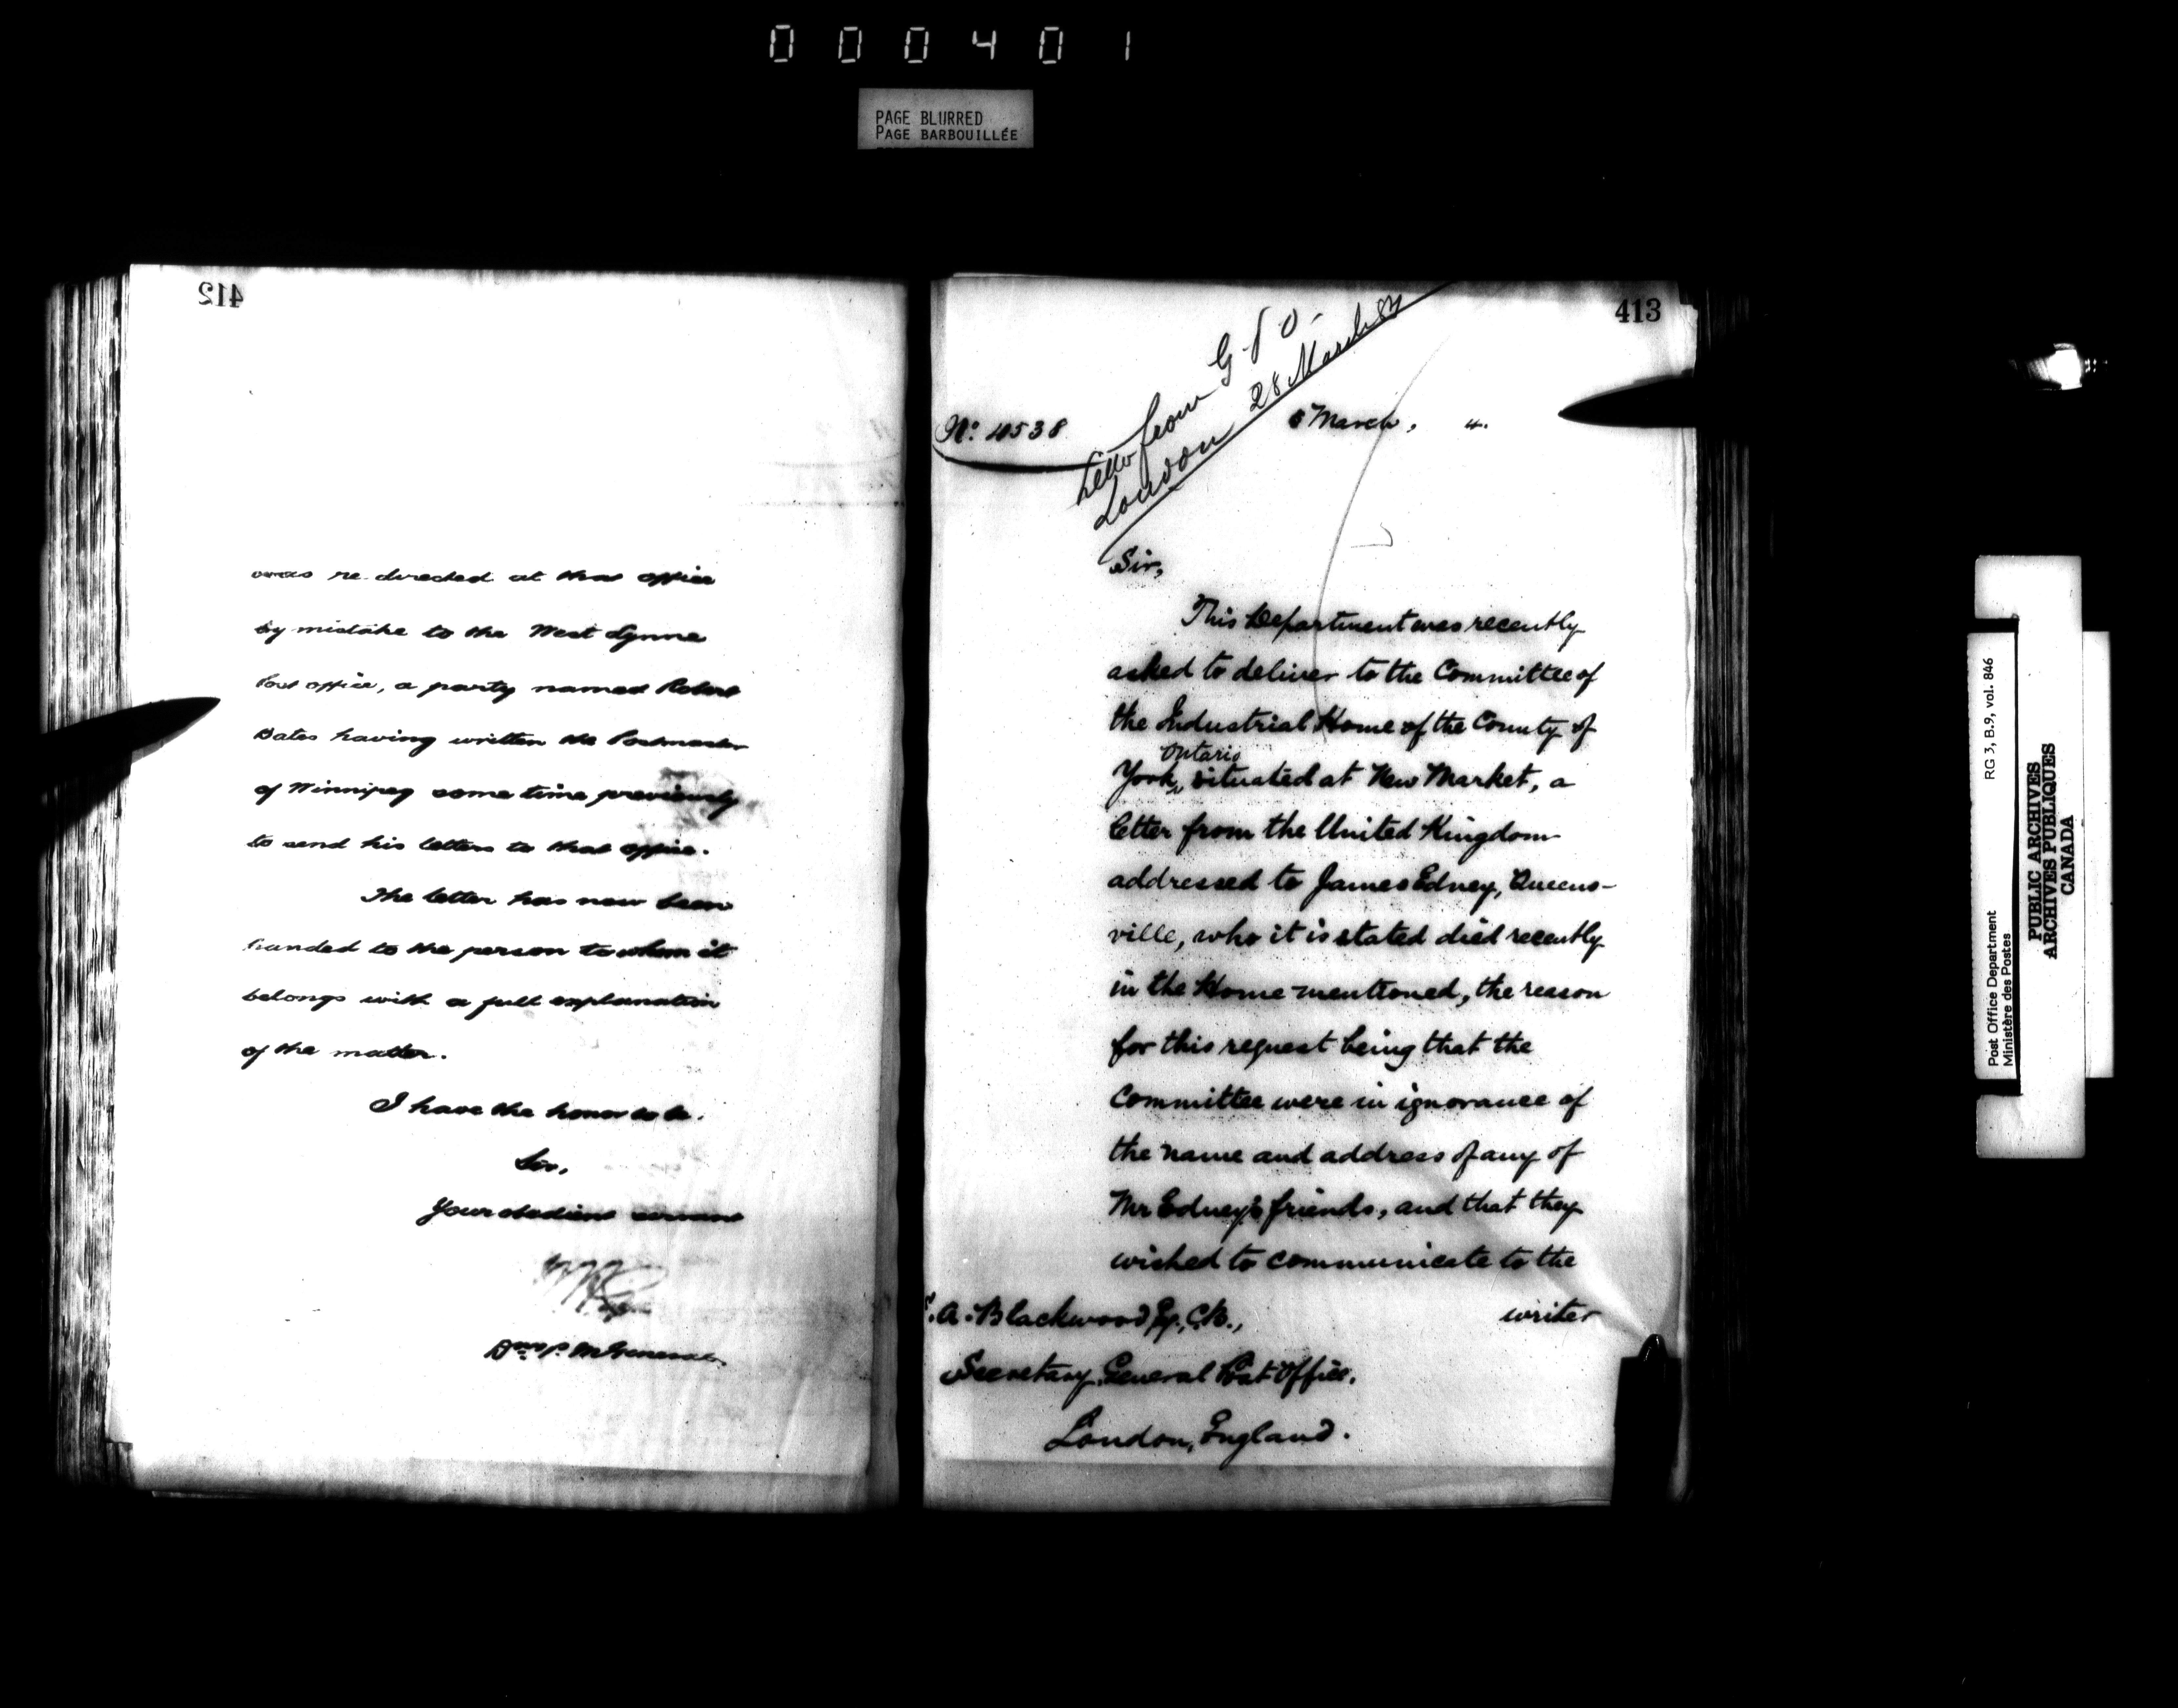 000401
PAGE BLURRED
PAGE BARBOUILLÉE
412
was re-directed at that office
by mistake to the West Lynne
Post office, a party named Robert
Bates having written the Postmaster
of Winnipeg some time previously
to send his letters to that office.
The letter has now been
handed to the person to whom it
belongs with a full explanation
of the matter.
I have the honor to be.
Sir,
Your obedient servant
413
Letter from G.P.O.
London 28 March 84
No. 4538
March, 4.
Sir,
This Department was recently
asked to deliver to the Committee of
the Industrial Home of the County of
Ontario
York, situated at New Market, a
letter from the United Kingdom
addressed to James Edney, Queens-
ville, who it is stated died recently
in the Home mentioned, the reason
for this request being that the
Committee were in ignorance of
the name and address of any of
Mr Edney's friends, and that they
wished to communicate to the
writer
A. Blackwood Esq., C.B.,
Secretary, General Post Office,
London, England.
Post Office Department RG 3, B.9, vol. 846
Ministère des Postes
PUBLIC ARCHIVES
ARCHIVES PUBLIQUES
CANADA